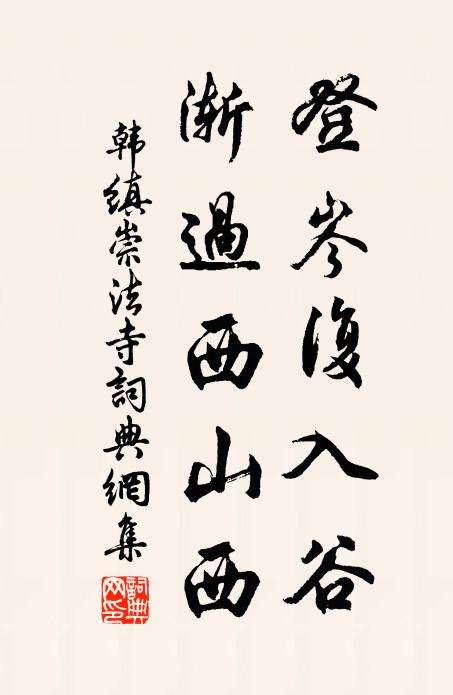 登岑復入谷
漸過西山西
韓縝崇法寺詞典網集
詞典網印